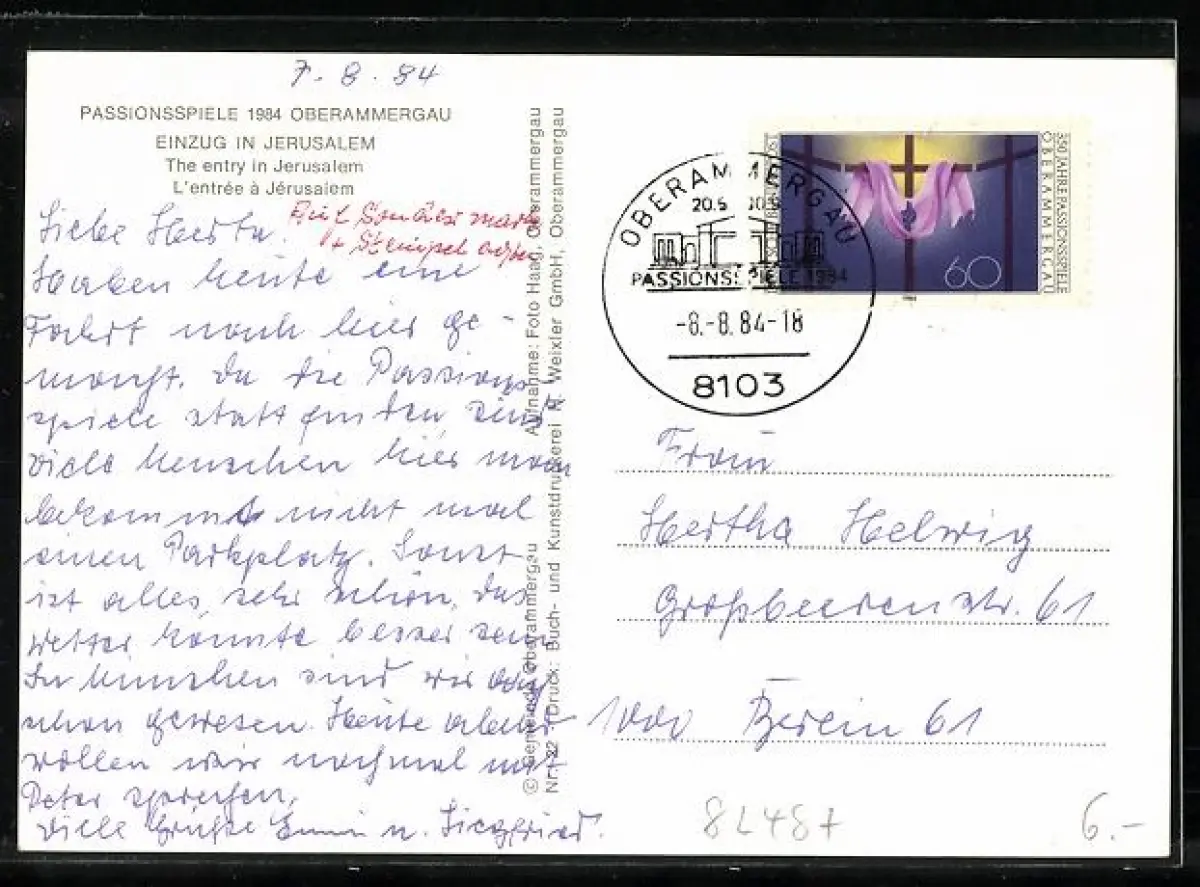 7.8.84
PASSIONSSPIELE 1984 OBERAMMERGAU
EINZUG IN JERUSALEM
The entry in Jerusalem
L'entrée à Jérusalem
Auf Sondermarke
+ Stempel achten
Liebe Herta.
Haben heute eine
Fahrt nach hier ge-
macht. Da die Passions
spiele stattfinden sind
viele Menschen hier man
bekommt nicht mal
einen Parkplatz. Sonst
ist alles sehr schön, das
Wetter könnte besser sein
In München sind wir auch
schon gewesen. Heute abend
wollen wir nochmal mit
Peter sprechen.
Viele Grüße Emmi u. Siegfried.
© Gemeinde Oberammergau Aufnahme: Foto Haag, Oberammergau
Nr. 22 Druck: Buch- und Kunstdruckerei M. Weixler GmbH, Oberammergau
OBERAMMERGAU
20.5
PASSIONSSPIELE 1984
-8.-8.84-18
8103
350 JAHRE PASSIONSSPIELE
OBERAMMERGAU
60
Frau
Hertha Helwig
Großbeerenstr. 61
1000 Berlin 61
82487
6.-